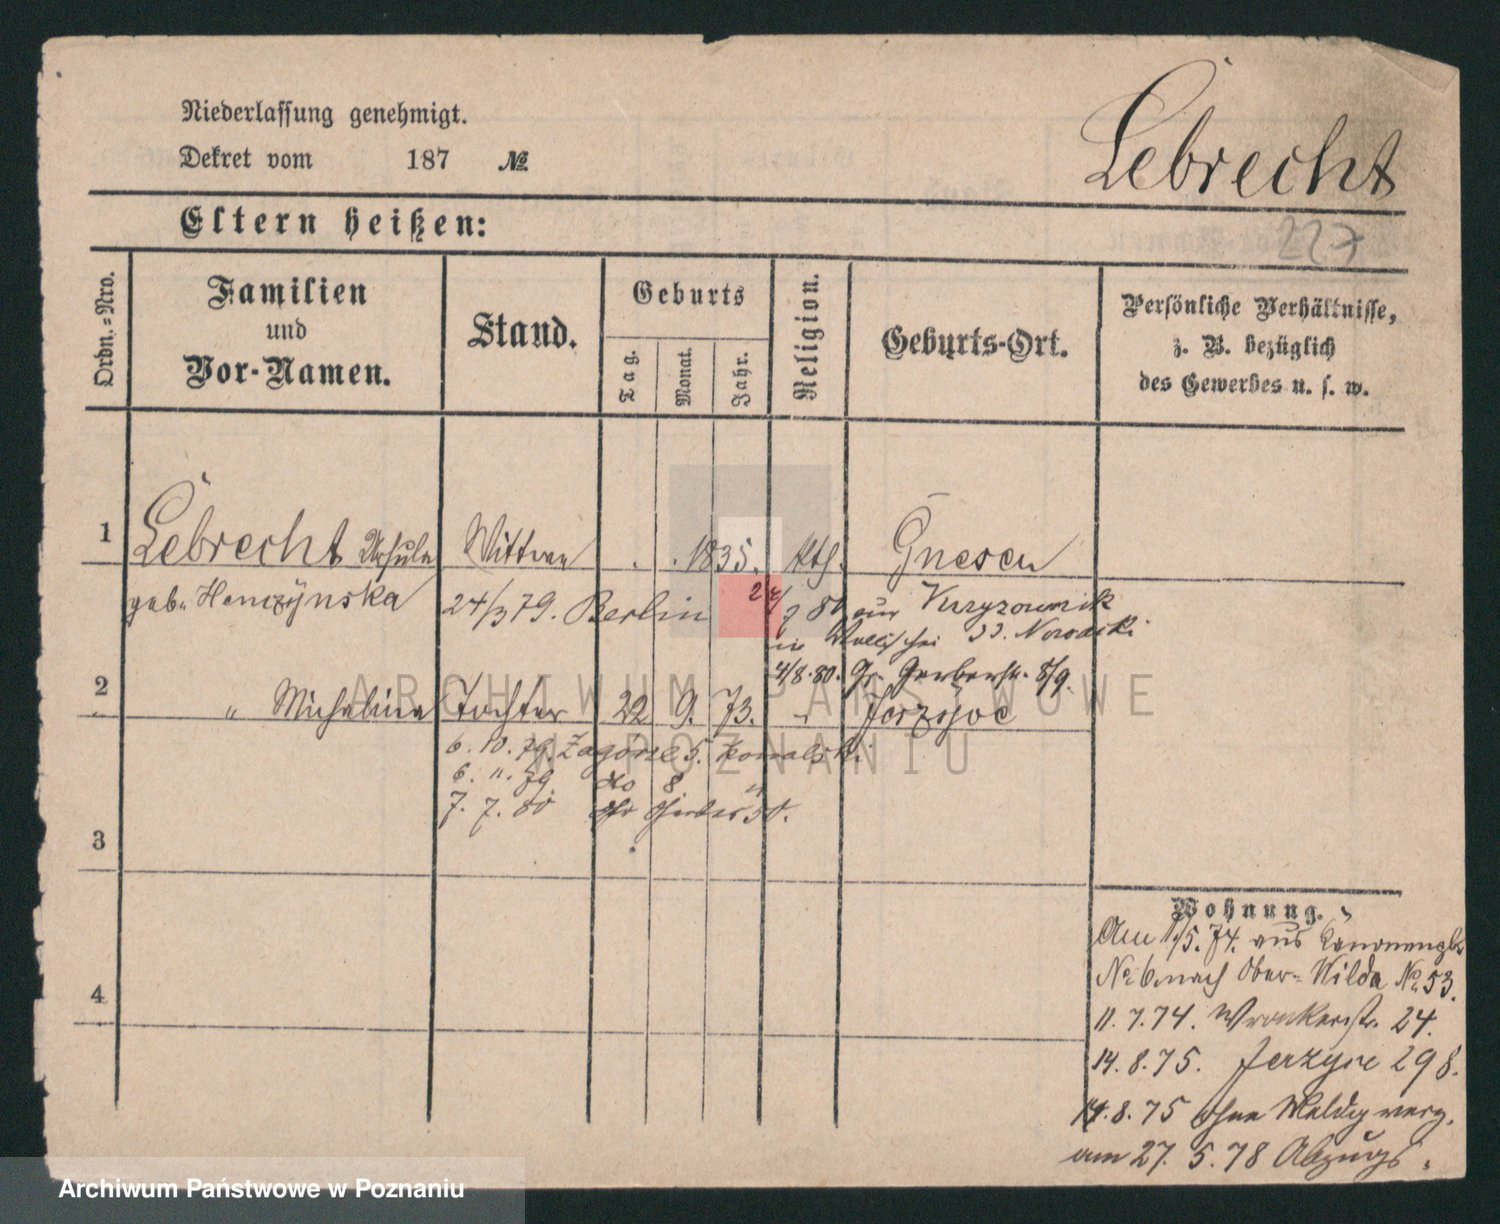 Niederlassung genehmigt.
Dekret vom 187 №
Lebrecht
227
Eltern heißen:
Ordn.-Nro.
Familien
und
Vor-Namen.
Stand.
Geburts
Tag.
Monat.
Jahr.
Religion.
Geburts-Ort.
Persönliche Verhältnisse,
z. B. bezüglich
des Gewerbes u. s. w.
1 Lebrecht Ursula Wittwe . . 1835. kth. Gnesen
geb. 24/3 79. Berlin
4/8.80. Gr. Gerberstr. 8/9.
2 " Michalina Tochter 22 9. 73. " Jerzyce
6. 10. 79. Zagorze 5.
6. 11. 79 do 8
7. 7. 80
3
4
Wohnung.
Am 1/5.74. aus
No 6. nach Ober-Wilda No. 53.
11.7.74. Wronkerstr. 24.
14.8.75. Jerzyce 298.
14.8.75 ohne Meldg verz.
am 27.5.78 Abzugs
ARCHIWUM PAŃSTWOWE
W POZNANIU
Archiwum Państwowe w Poznaniu